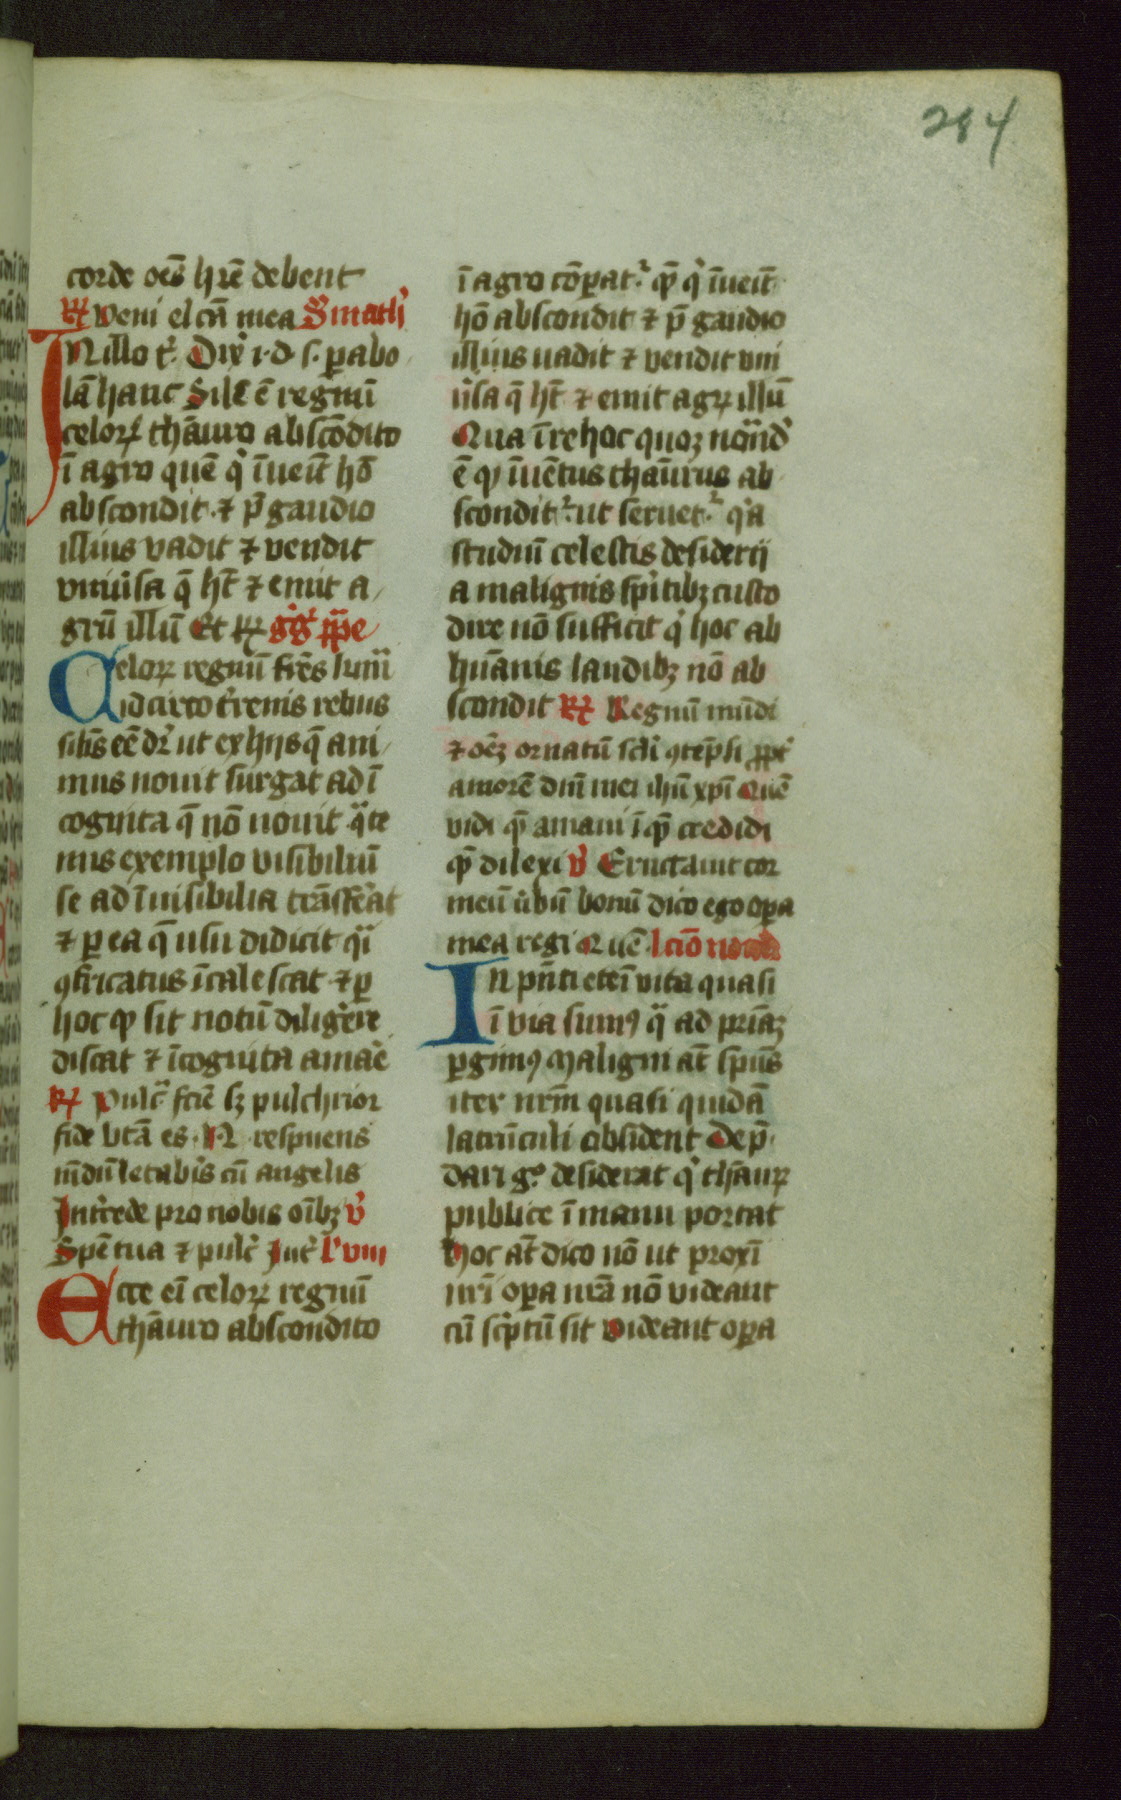 284
corde oēs hr̄e debent
R͛ Veni elcā mea S͛ math͛i
IN illo t͛. Dix͛ i. d. s. ꝑabo
lā hanc Sil̄e ē regnū
celoꝝ thāuro absco͞dito
ī agro quē q͛ īuēit hō
abscondit. ⁊ p̄ gaudio
illius vadit ⁊ vendit
vniu͛sa q̄ ht̄ ⁊ emit a
grū illū Et rꝝ g͛g͛ pp̄e
Celoꝝ regnū fr̄es kr̄mi
idcirco t͛renis rebus
silīs eē dr͛ ut ex hijs q̄ ani
mus nouit surgat ad ī
cognita q̄ nō nouit qͣte
nus exemplo visibiliū
se ad īuisibilia trāsferat
⁊ ꝑ ea q̄ usu didicit qͣi
ꝯfricatus īcalescat ⁊ ꝑ
hoc ꝙ sit notū dilig͛e
discat ⁊ īcognita amar̄e
R͛ Pulcͣ facie sꝫ pulchrior
fide btā es. N. respuens
mūdū letab͛is cū angelis
Int͛cede pro nobis oībꝫ v͛
Spē tua ⁊ pulc͛ Int͛ l͛ viii
Ecce eī celoꝝ regnū
thāuro abscondito
ī agro cōꝑat͛. qᷓ q͛ īueīt
hō abscondit ⁊ p̄ gaudio
illius uadit ⁊ vendit vni
u͛sa q̄ ht̄ ⁊ emit agꝝ illū
Qua ī re hoc quoꝫ notād͛
ē ꝙ īuētus thāurus ab
scondit͛. ut seruet͛. qͥa
studiū celestis desiderij
a malignis sp͛itibꝫ custo
dire nō sufficit qͥ hoc ab
hūanis laudibꝫ nō ab
scondit R͛ Regnū mūdi
⁊ oēꝫ ornatū scl͛i ꝯtēpsi ꝓpt͛
amorē dn̄i mei ihū xp̄i Quē
vidi quē amaui ī quē credidi
quē dilexi v͛ Eructauit cor
meū v͛bū bonū dico ego oꝑa
mea regi Quē lcīo nona
In pn̄ti eteī vita quasi
ī via sumꝰ qͣ ad pr̄iaꝫ
ꝑgimꝰ Maligni at̄ sp̄us
iter nr̄m quasi quidā
latrūculi obsident Dep̄
dari gͦ desiderat qͥ thāuꝝ
publice ī manu portat
Hoc at̄ dico nō ut proxī
nr̄i oꝑa nr̄a nō videant
cū sc͛ptū sit Videant oꝑa